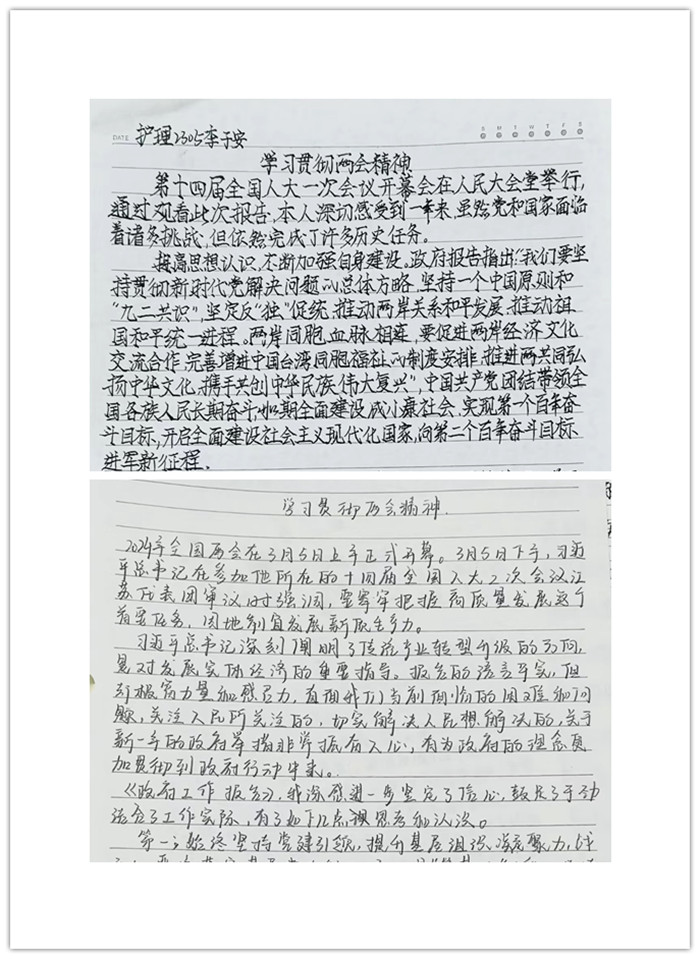 DATE 护理2305李于安
S M T W T F S
学习贯彻两会精神
第十四届全国人大一次会议开幕会在人民大会堂举行,
通过观看此次报告,本人深切感受到一年来,虽然党和国家面临
着诸多挑战,但依然完成了许多历史任务。
提高思想认识,不断加强自身建设。政府报告指出:“我们要坚
持贯彻新时代党解决问题的总体方略,坚持一个中国原则和
“九二共识”,坚定反“独”促统,推动两岸关系和平发展,推动祖
国和平统一进程。两岸同胞血脉相连,要促进两岸经济文化
交流合作,完善增进中国台湾同胞福祉的制度安排,推进两共同弘
扬中华文化,携手共创中华民族伟大复兴”,中国共产党团结带领全
国各族人民长期奋斗,如期全面建设成小康社会,实现第一个百年奋
斗目标,开启全面建设社会主义现代化国家,向第二个百年奋斗目标
进军新征程.
学习贯彻两会精神.
2024年全国两会在3月5日上午正式开幕。3月5日下午,习近
平总书记在参加他所在的十四届全国人大2次会议江
苏代表团审议时强调,要牢牢把握高质量发展这个
首要任务,因地制宜发展新质生产力。
习近平总书记深刻阐明了传统产业转型升级的方向,
是对发展实体经济的重要指导。报告的语言平实,但
积极有力量和感召力,直面我们当前面临的困难和问
题,关注人民所关注的,切实解决人民想解决的,关于
新一年的政府举措非常振奋人心,有为政府的理念更
加贯彻到政府行动中来。
《政府工作报告》,我深感进一步坚定了信心,鼓足了干劲
结合了工作实际,有了如下几点思考和认识。
第一:始终坚持党建引领,提升基层组织凝聚力,